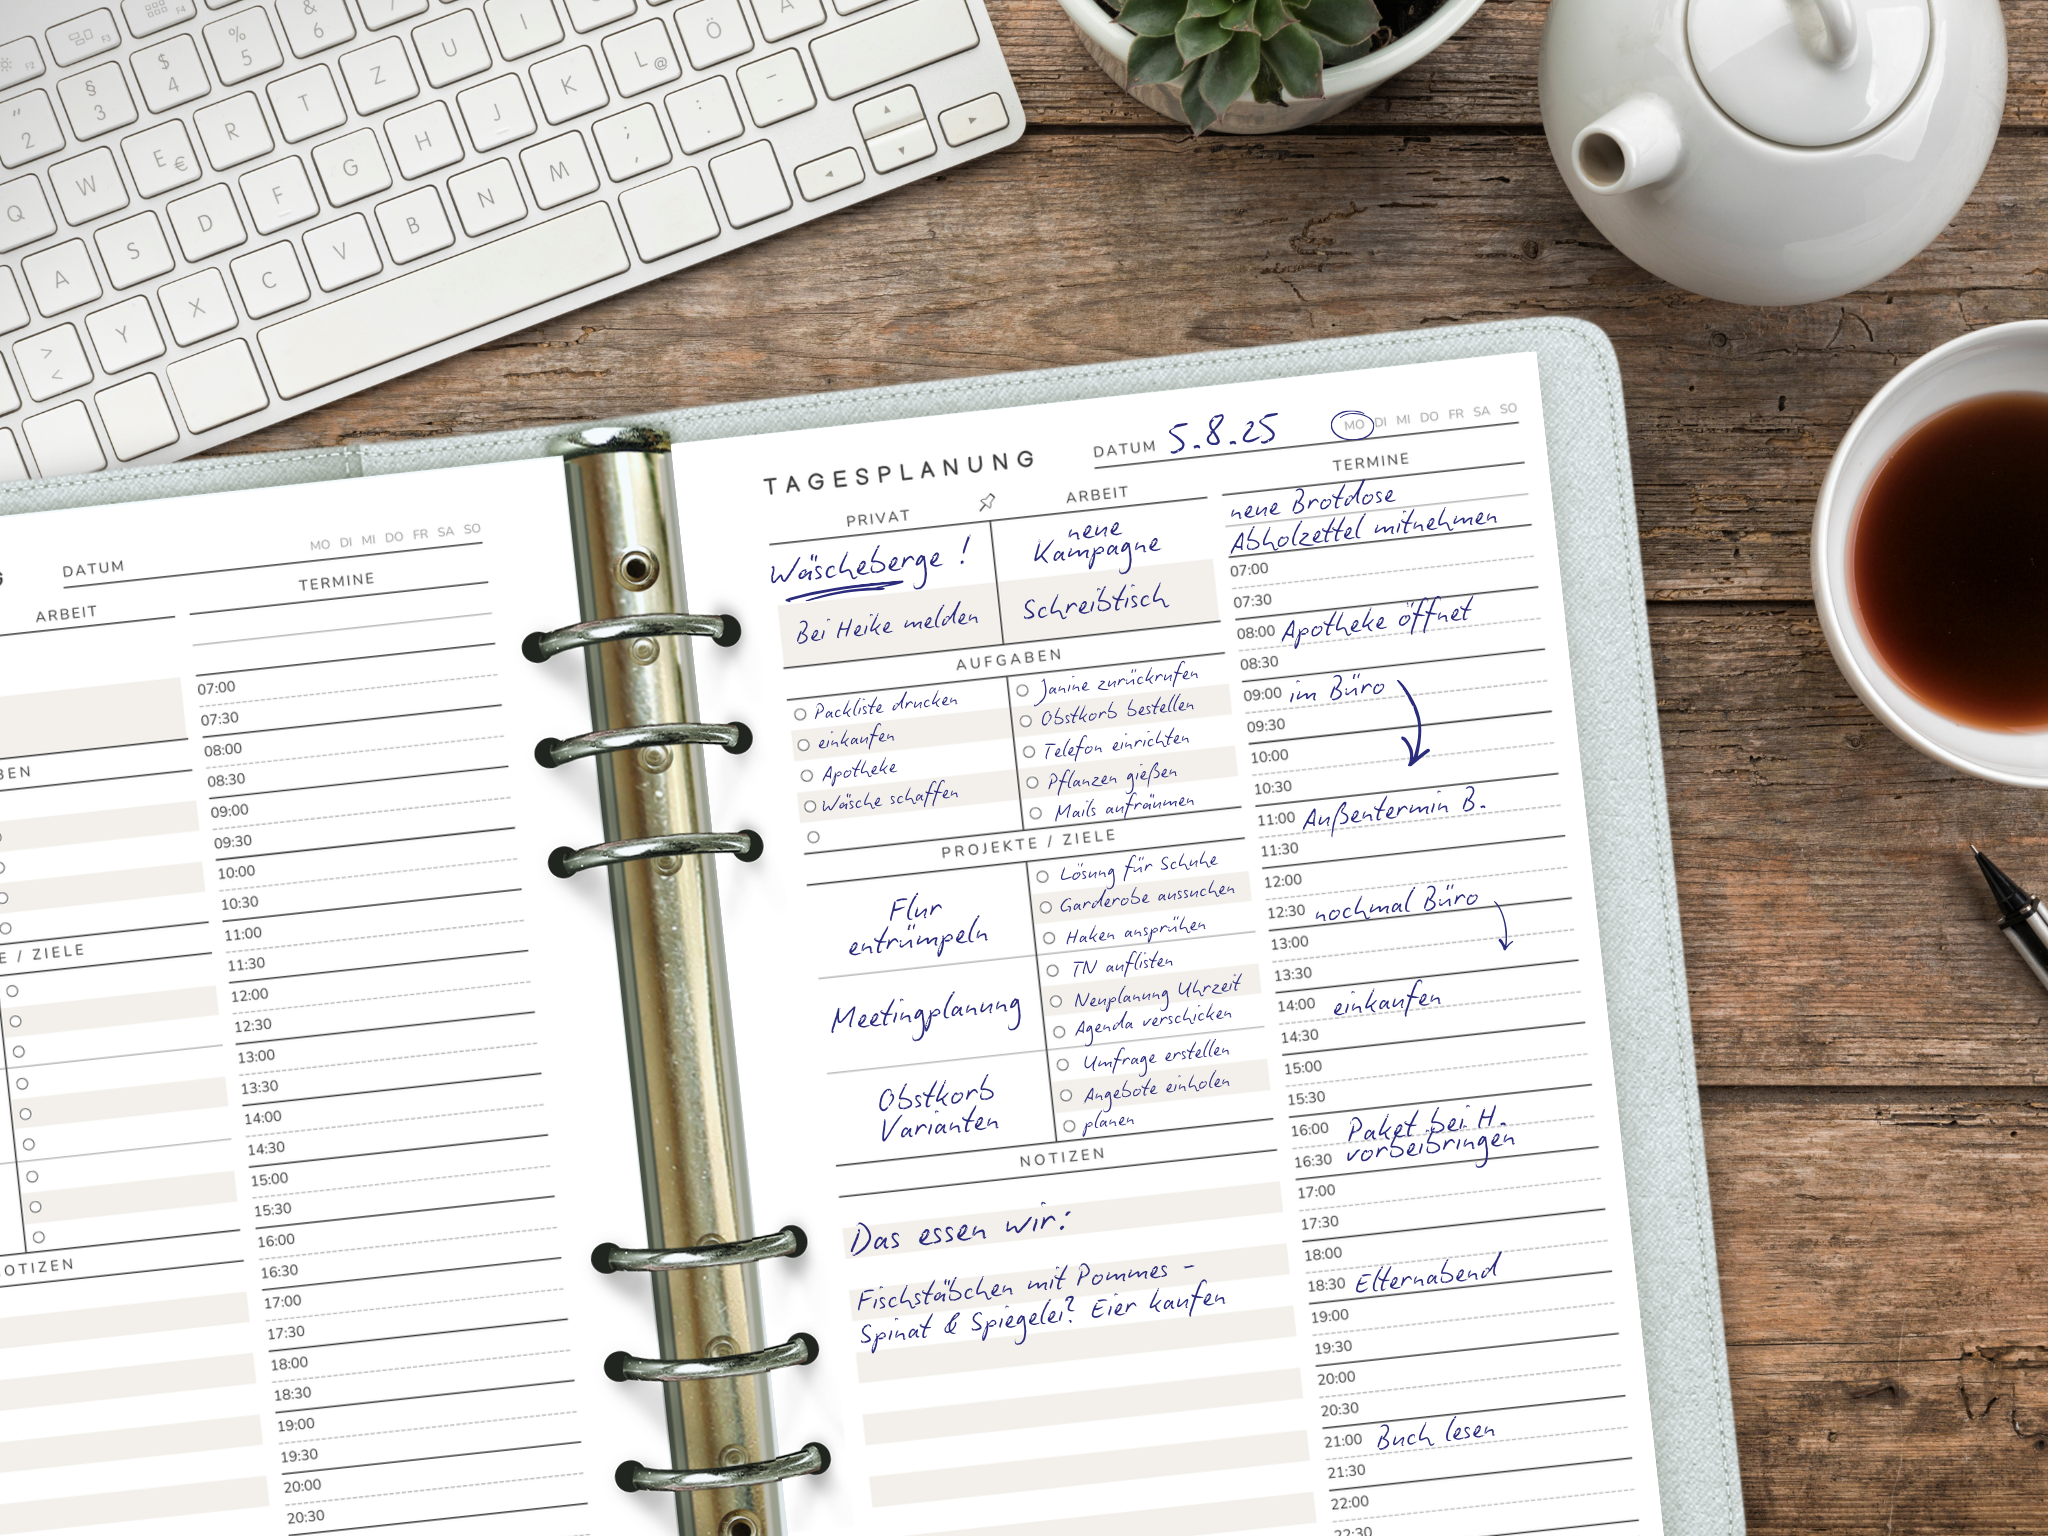 F2
F3
F4
" 2
§ 3
$ 4
% 5
& 6
/
Q W E € R T Z U I
A S D F G H J K L @ Ö Ä
> < Y X C V B N M ; , : . _ -
G
DATUM
MO DI MI DO FR SA SO
ARBEIT
TERMINE
BEN
E / ZIELE
OTIZEN
07:00
07:30
08:00
08:30
09:00
09:30
10:00
10:30
11:00
11:30
12:00
12:30
13:00
13:30
14:00
14:30
15:00
15:30
16:00
16:30
17:00
17:30
18:00
18:30
19:00
19:30
20:00
20:30
TAGESPLANUNG
DATUM 5.8.25
MO DI MI DO FR SA SO
PRIVAT
Wäscheberge!
Bei Heike melden
ARBEIT
neue
Kampagne
Schreibtisch
AUFGABEN
Packliste drucken
einkaufen
Apotheke
Wäsche schaffen
Janine zurückrufen
Obstkorb bestellen
Telefon einrichten
Pflanzen gießen
Mails aufräumen
PROJEKTE / ZIELE
Flur
entrümpeln
Lösung für Schuhe
Garderobe aussuchen
Haken ansprühen
Meetingplanung
TN auflisten
Neuplanung Uhrzeit
Agenda verschicken
Obstkorb
Varianten
Umfrage erstellen
Angebote einholen
planen
NOTIZEN
Das essen wir:
Fischstäbchen mit Pommes -
Spinat & Spiegelei? Eier kaufen
TERMINE
neue Brotdose
Abholzettel mitnehmen
07:00
07:30
08:00 Apotheke öffnet
08:30
09:00 im Büro
09:30
10:00
10:30
11:00 Außentermin B.
11:30
12:00
12:30 nochmal Büro
13:00
13:30
14:00 einkaufen
14:30
15:00
15:30
16:00 Paket bei H.
16:30 vorbeibringen
17:00
17:30
18:00
18:30 Elternabend
19:00
19:30
20:00
20:30
21:00 Buch lesen
21:30
22:00
22:30